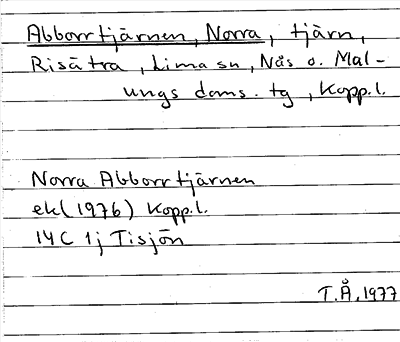 Abborrtjärnen, Norra, tjärn,
Risätra, Lima sn, Nås o. Mal-
ungs doms. tg, Kopp.l.
Norra Abborrtjärnen
ek (1976) Kopp.l.
14 C 1j Tisjön
T.Å, 1977